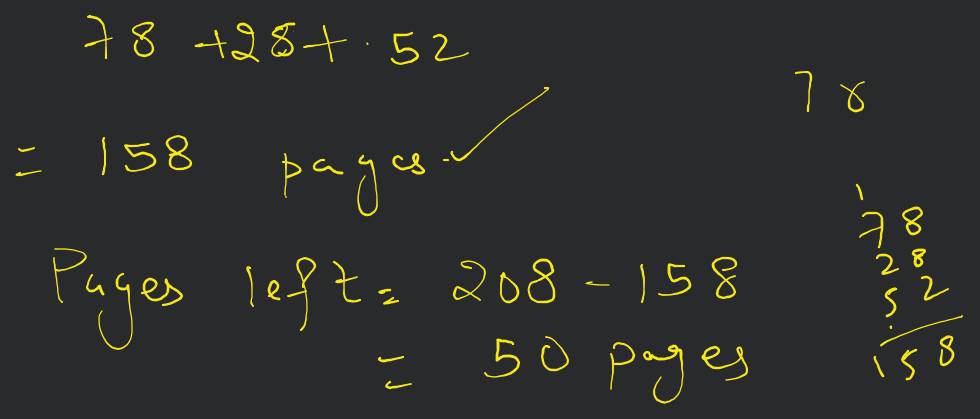 78 +28+ 52
= 158 pages
Pages left = 208 - 158
= 50 pages
78
1
78
28
52
158